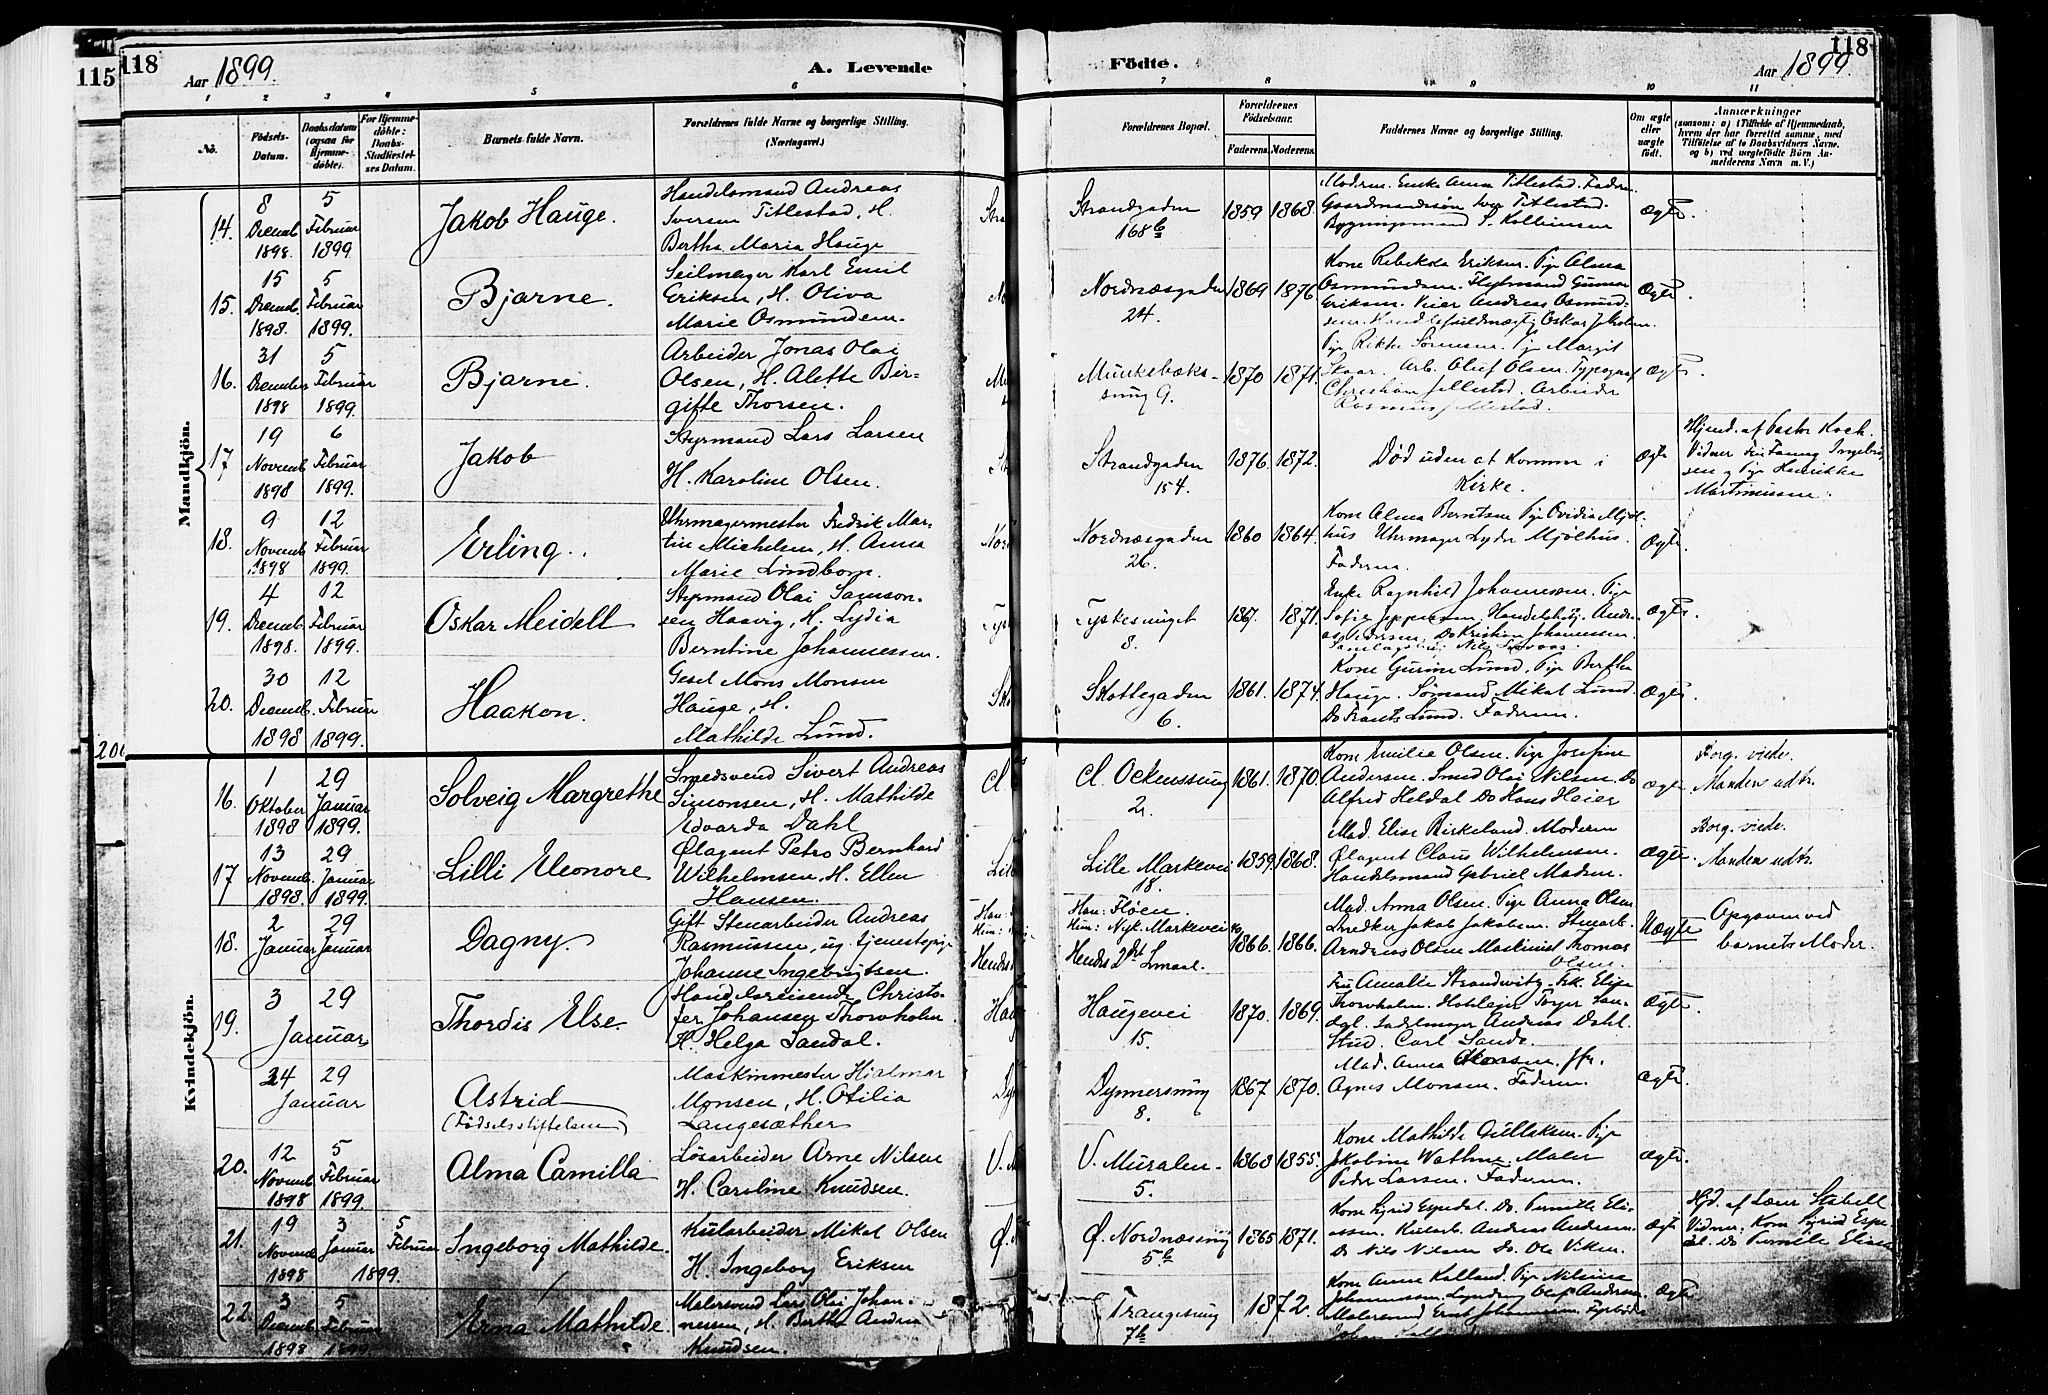 115 118
Aar 1899.
A. Levende
Fødte.
118
Aar 1899.
1 2 3 4 5 6 7 8 9 10 11
No.
Fødsels-
Datum.
Daabsdatum
(ogsaa for
Hjemme-
døbte).
For Hjemme-
døbte:
Daabs-
Stadfæstel-
ses Datum.
Barnets fulde Navn.
Forældrenes fulde Navne og borgerlige Stilling.
(Næringsvei.)
Forældrenes Bopæl.
Forældrenes
Fødselsaar.
Faderens. Moderens.
Faddernes Navne og borgerlige Stilling.
Om ægte
eller
uægte
født.
Anmærkninger
(saasom: a) i Tilfælde af Hjemmedaab,
hvem der har forrettet samme, med
Tilføielse af to Daabsvidners Navne.
og b) ved uægtefødte Børn An-
melderens Navn m. V.)
Mandkjön.
14.
8
Decemb.
1898.
5
Februar
1899.
Jakob Hauge.
Handelsmand Andreas
Iversen Titlestad, H.
Bertha Maria Hauge
Strandgaden
168 b
1859 1868.
Moderen. Enke Anna Titlestad. Faderen.
Gaardmandssøn Iver Titlestad.
Bygningsmand S. Kolbeinsen
Ægte.
15.
15
Decemb.
1898.
5
Februar
1899.
Bjarne.
Seilmager Karl Emil
Eriksen, H. Oliva
Marie Osmundsen.
Nordnæsgaden
24.
1869 1876
Kone Rebekka Eriksen. Pige Alma
Osmundsen. Gunnar
Eriksen. Andreas Osmund-
sen. Oskar Jakobsen.
Ægte.
16.
31
December
1898
5
Februar
1899.
Bjarne.
Arbeider Jonas Olai
Olsen, H. Alette Bir-
gitte Thorsen.
Munkebæks-
smug 9.
1870 1871.
Pige Rikke Sørensen. Pige Margit
Skaar. Arb. Oluf Olsen. Typograf
Christian Jellestad. Arbeider
Rasmus Jellestad.
Ægte.
17
19
Novemb.
1898
6
Februar
1899.
Jakob
Styrmand Lars Larsen
H. Karoline Olsen.
Strandgaden
154.
1876. 1872.
Død uden at komme i
Kirke.
Ægte
Hjemd. af Pastor Koch.
Vidner Frk Fanny Ingebrigt-
sen og Pige Henrikke
Martinussen.
18.
9
Novemb.
1898
12
Februar
1899.
Erling.
Uhrmagermester Fredrik Mar-
tin Michelsen, H. Anna
Marie Lindborn.
Nordnæsgaden
26.
1860 1864.
Kone Alma Berntsen Pige Ovidia Mjøl-
hus Uhrmager Lyder Mjølhus.
Faderen.
Ægte.
19.
4
Decemb.
1898.
12
Februar
1899.
Oskar Meidell
Styrmand Olai Samson-
sen Haavig, H. Lydia
Berntine Johannessen.
Tyskesmuget
8.
1867. 1871.
Enke Ragnhild Johannessen. Pige
Sofie Jeppesen, Handelsbetj. Andre-
as Pedersen, Do Kristian Johannessen
Ægte
20.
30
Decemb.
1898
12
Februar
1899.
Haakon.
Gesel Mons Monsen
Hauge, H.
Mathilde Lund.
Skottegaden
6.
1861. 1874.
Kone Gurine Lund. Pige Bertha
Hauge. Sømand Mikal Lund.
Do Frants Lund. Faderen.
Ægte
Kvindekjön.
16.
1
Oktober
1898
29
Januar
1899.
Solveig Margrethe
Smedsvend Sivert Andreas
Simonsen, H. Mathilde
Edvarda Dahl
Cl. Ockenssmug
2.
1861. 1870.
Kone Emilie Olsen. Pige Josefine
Andersen. Smed Olai Nilsen. Do
Alfred Heldal Do Hans Heier
Ægte
Borg. viede.
Manden udtr.
17
13
Novemb.
1898.
29
Januar
1899.
Lilli Eleonore
Ølagent Petro Bernhard
Wilhelmsen, H. Ellen
Hansen.
Lille Markevei
18.
1859. 1868.
Mad. Elise Birkeland. Moderen
Ølagent Claus Wilhelmsen.
Handelsmand Gabriel Madsen.
Ægte.
Borg. viede.
Manden udtr.
18.
2
Januar
29
Januar
Dagny.
Gift Stenarbeider Andreas
Rasmussen, ug. tjenestepige
Johanne Ingebrigtsen.
Han: Fløen.
Hun: Nyk. Markevei 19
Hendes 2det Lmaal.
1866. 1866.
Mad. Anna Olsen. Pige Anna Olsen
Snedker Jakob Jakobsen. Stenarb.
Arndreas Olsen Maskinist Thomas
Olsen.
Uægte
Opgaven ved
barnets Moder.
19.
3
29
Januar
Thordis Else
Handelsreisende Christo-
fer Johansen Thornholm.
H. Helga Sandal.
Haugevei
15.
1870. 1869.
Fru Amalie Strandwitz. Frk. Elise
Thornholm. Hoteleier Torger San-
dal. Sadelmager Andreas Dahl.
Stud. Carl Sande.
Ægte
24
Januar
29
Astrid
(Fødselsstiftelsen)
Maskinmester Hjalmar
Monsen, H. Otilia
Langesæther
Dynnersmug
8.
1867 1870.
Mad. Anna Monsen. Jfr.
Agnes Monsen. Faderen.
Ægte.
20.
12
Novemb.
1898
5
Februar
1899.
Alma Camilla
Løsarbeider Arne Nilsen
H. Caroline Knudsen.
V. Muralen.
5.
1868 1855.
Kone Mathilde Gullaksen. Pige
Jakobine Wathne. Maler
Peder Larsen. Faderen.
Ægte.
21.
19
Novemb.
1898
3
Januar
5
Februar
1899.
Ingeborg Mathilde.
Kularbeider Mikal Olsen
H. Ingeborg Eriksen
Ø. Nordnæssmug
5 b
1865 1871.
Kone Sigrid Espedal. Do. Pernille Eli-
assen. Kularb. Andreas Andersen.
Do Nils Nilsen Do. Ole Viken.
Ægte
Hjd. af Lærer Stabell
Vidner. Kone Sigrid Espe-
dal. Do Pernille Eliass
22.
3
Decemb.
1898
5
Februar
1899
Erna Mathilde.
Malersvend Lars Olai Johan-
nessen, H. Bertha Andrea
Knudsen.
Trangesmug
7 b
1872.
Kone Anna Kalland. Pige Nilsine
Johannessen. Oluf Andersen.
Malersvend Ernst Johannessen.
Ægte